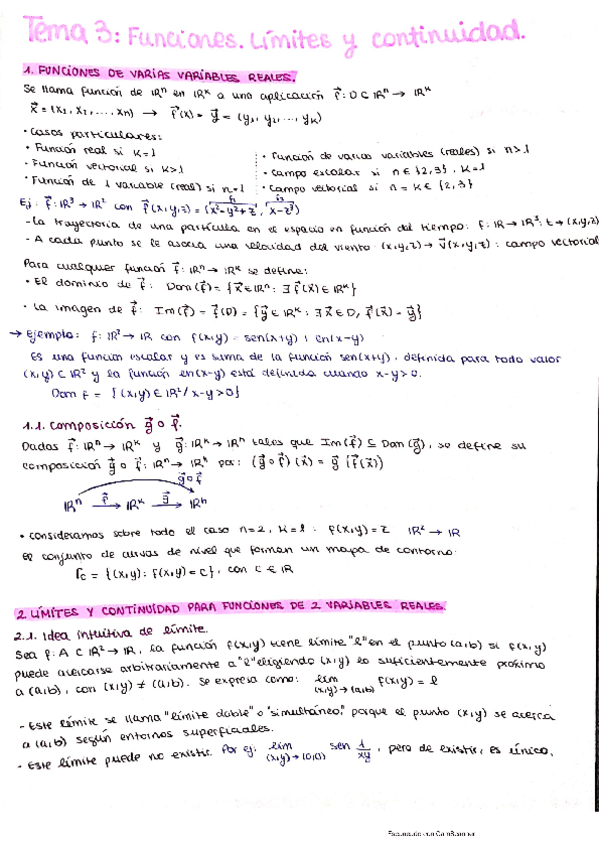 Tema 3: Funciones. Límites y continuidad.
1. FUNCIONES DE VARIAS VARIABLES REALES.
Se llama función de ℝⁿ en ℝᵏ a una aplicación f⃗: D ⊂ ℝⁿ → ℝᵏ
x⃗ = (x₁, x₂, ..., xₙ) → f⃗(x) = y⃗ = (y₁, y₂, ..., yₖ)
• Casos particulares:
• Función real si k=1
• Función vectorial si k>1
• Función de 1 variable (real) si n=1
• Función de varias variables (reales) si n>1
• Campo escalar si n ∈ {2,3}, k=1
• Campo vectorial si n = k ∈ {2,3}
Ej: f⃗: ℝ³ → ℝ² con f⃗(x,y,z) = (x²-y²+z, x-z³)
f₁ f₂
- La trayectoria de una partícula en el espacio en función del tiempo: f: ℝ → ℝ³: t → (x,y,z)
- A cada punto se le asocia una velocidad del viento: (x,y,z) → v⃗(x,y,z): campo vectorial
Para cualquier función f⃗: ℝⁿ → ℝᵏ se define:
• El dominio de f⃗: Dom(f⃗) = {x⃗ ∈ ℝⁿ: ∃ f⃗(x⃗) ∈ ℝᵏ}
• La imagen de f⃗: Im(f⃗) = f⃗(D) = {y⃗ ∈ ℝᵏ: ∃ x⃗ ∈ D, f⃗(x⃗) = y⃗}
→ Ejemplo: f: ℝ² → ℝ con f(x,y) = sen(x+y) + ln(x-y)
Es una función escalar y es suma de la función sen(x+y), definida para todo valor
(x,y) ⊂ ℝ² y la función ln(x-y) está definida cuando x-y>0.
Dom f = {(x,y) ∈ ℝ² / x-y>0}
1.1. Composición g⃗ ∘ f⃗.
Dadas f⃗: ℝⁿ → ℝᵏ y g⃗: ℝᵏ → ℝʰ tales que Im(f⃗) ⊆ Dom(g⃗), se define su
composición g⃗ ∘ f⃗: ℝⁿ → ℝᵏ por: (g⃗ ∘ f⃗)(x⃗) = g⃗(f⃗(x⃗))
g⃗ ∘ f⃗
ℝⁿ →f⃗ ℝᵏ →g⃗ ℝʰ
• Consideramos sobre todo el caso n=2, k=1: f(x,y) = z ℝ² → ℝ
El conjunto de curvas de nivel que forman un mapa de contorno:
Γc = {(x,y): f(x,y) = c}, con c ∈ ℝ
2 LÍMITES Y CONTINUIDAD PARA FUNCIONES DE 2 VARIABLES REALES.
2.1. Idea intuitiva de límite.
Sea f: A ⊂ ℝ² → ℝ, la función f(x,y) tiene límite "l" en el punto (a,b) si f(x,y)
puede acercarse arbitrariamente a "l" eligiendo (x,y) lo suficientemente próximo
a (a,b), con (x,y) ≠ (a,b). Se expresa como: lim f(x,y) = l
(x,y) → (a,b)
- Este límite se llama "límite doble" o "simultáneo," porque el punto (x,y) se acerca
a (a,b) según entornos superficiales.
- Este límite puede no existir. Por ej: lim sen 1/xy, pero de existir, es único.
(x,y) → (0,0)
Escaneado con CamScanner